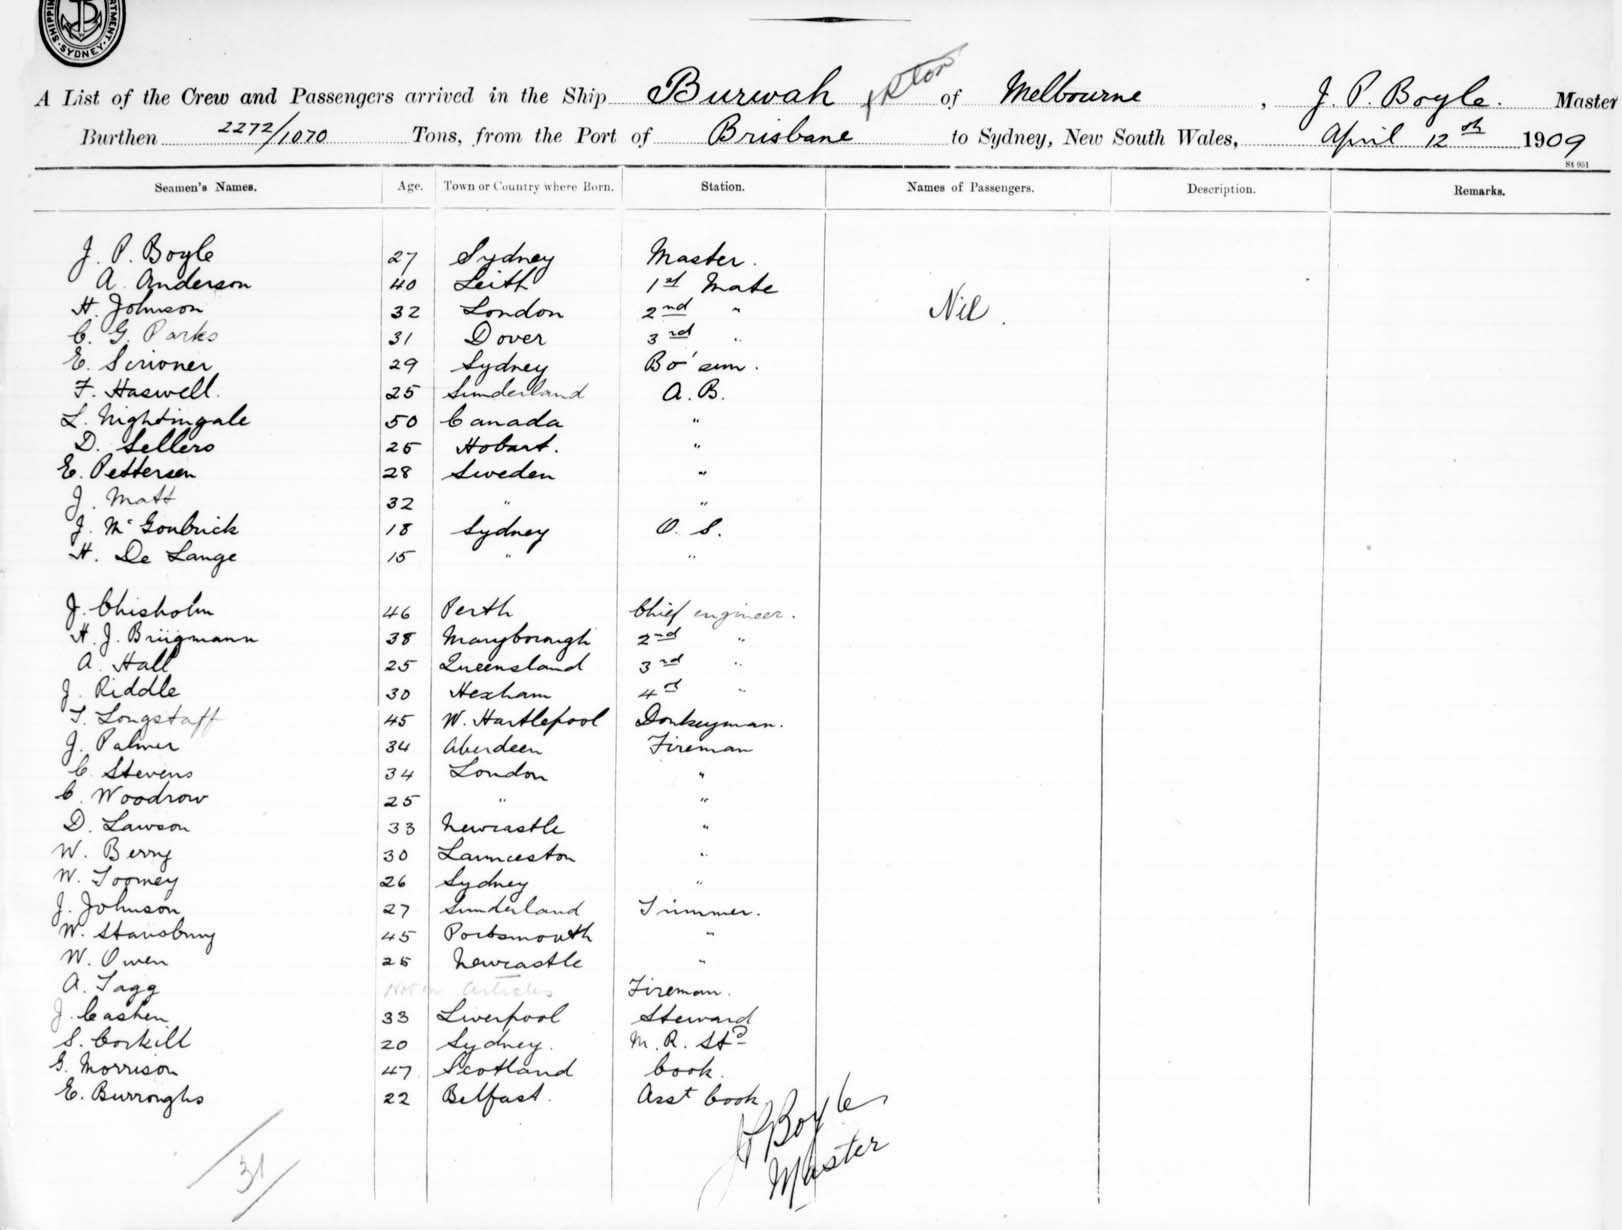 SHIPPING DEPARTMENT. SYDNEY.
A List of the Crew and Passengers arrived in the Ship Burwah of Melbourne, J. P. Boyle. Master
Burthen 2272/1070 Tons, from the Port of Brisbane to Sydney, New South Wales, April 12th 1909
St 951
Seamen's Names. Age. Town or Country where Born. Station. Names of Passengers. Description. Remarks.
J. P. Boyle 27 Sydney Master.
A. Anderson 40 Leith 1st Mate
H. Johnson 32 London 2nd " Nil.
C. G. Parks 31 Dover 3rd "
E. Scrivner 29 Sydney Bo'sun.
F. Haswell. 25 Sunderland A. B.
L. Nightingale 50 Canada "
D. Sellers 25 Hobart. "
E. Pettersen 28 Sweden "
J. Matt 32 " "
J. McGonbrick 18 Sydney O. S.
H. De Lange 15 " "
J. Chisholm 46 Perth Chief engineer.
H. J. Brügmann 38 Maryborough 2nd "
A. Hall 25 Queensland 3rd "
J. Riddle 30 Hexham 4th "
T. Longstaff 45 W. Hartlepool Donkeyman.
J. Palmer 34 Aberdeen Fireman
C. Stevens 34 London "
C. Woodrow 25 " "
D. Lawson 33 Newcastle "
W. Berry 30 Launceston "
W. Toomey 26 Sydney "
J. Johnson 27 Sunderland Trimmer.
W. Stansbury 45 Portsmouth "
W. Owen 25 Newcastle "
A. Tagg Not on Articles Fireman.
J. Cashen 33 Liverpool Steward
S. Corkill 20 Sydney. M. R. Std
G. Morrison 47 Scotland Cook.
E. Burroughs 22 Belfast. Asst Cook
J P Boyle
Master
31